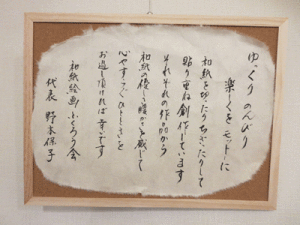 ゆっくり のんびり
楽しくを モットーに
和紙を切ったりちぎったりして
貼り重ね創作しています
それぞれの作品から
和紙の優しい暖かさを感じて
心やすらぐひとときを
お過し頂ければ幸いです
和紙絵画ふくろう会
代表 野本保子